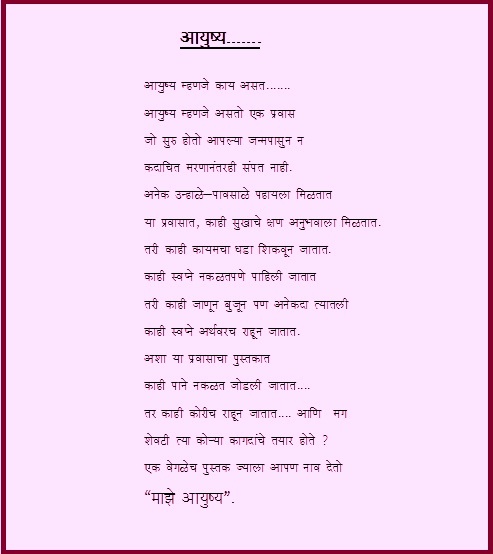 आयुष्य.......
आयुष्य म्हणजे काय असत.......
आयुष्य म्हणजे असतो एक प्रवास
जो सुरु होतो आपल्या जन्मपासुन न
कदाचित मरणानंतरही संपत नाही.
अनेक उन्हाळे–पावसाळे पहायला मिळतात
या प्रवासात, काही सुखाचे क्षण अनुभवाला मिळतात.
तरी काही कायमचा धडा शिकवून जातात.
काही स्वप्ने नकळतपणे पाहिली जातात
तरी काही जाणून बुजून पण अनेकदा त्यातली
काही स्वप्ने अर्थवरच राहून जातात.
अशा या प्रवासाचा पुस्तकात
काही पाने नकळत जोडली जातात....
तर काही कोरीच राहून जातात.... आणि मग
शेवटी त्या कोऱ्या कागदांचे तयार होते ?
एक वेगळेच पुस्तक ज्याला आपण नाव देतो
“माझे आयुष्य”.